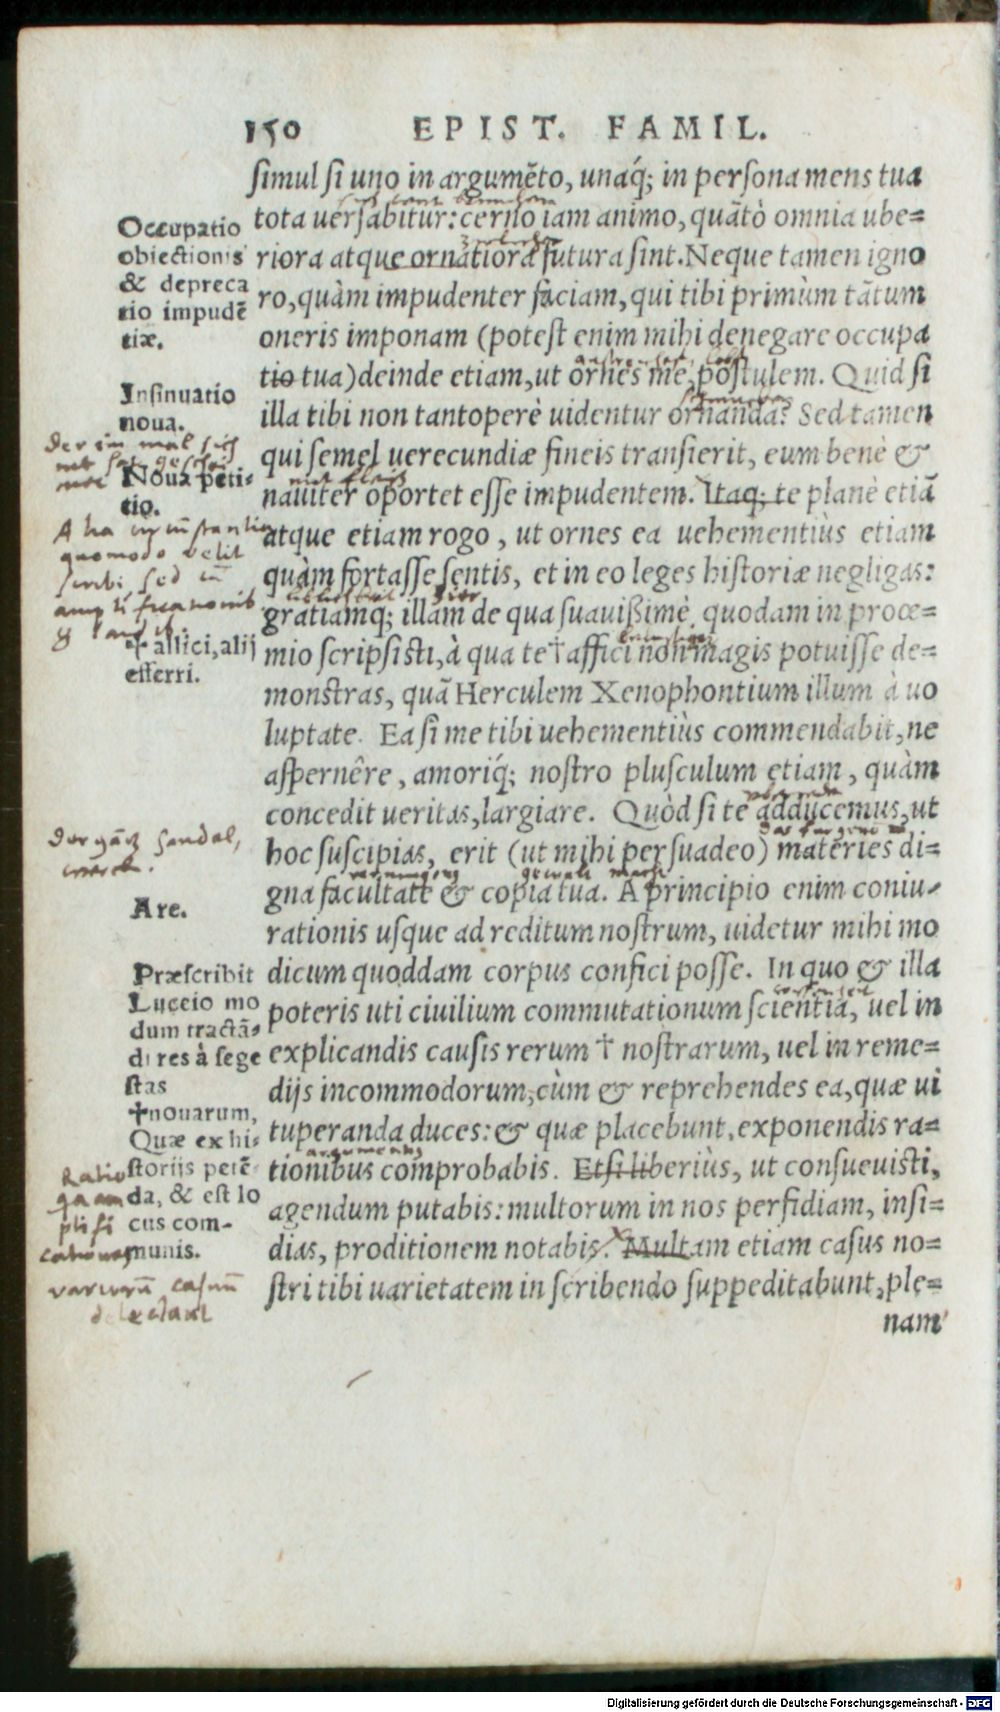 150 EPIST. FAMIL.
simul si uno in argumẽto, unaq́; in persona mens tua
tota uersabitur: cerno iam animo, quãtò omnia ube=
riora atque ornatiora futura sint. Neque tamen igno
ro, quàm impudenter faciam, qui tibi primùm tãtum
oneris imponam (potest enim mihi denegare occupa
tio tua) deinde etiam, ut ornes me, postulem. Quid si
illa tibi non tantoperè uidentur ornanda? Sed tamen
qui semel uerecundiæ fineis transierit, eum benè &
nauiter oportet esse impudentem. Itaq; te planè etiã
atque etiam rogo, ut ornes ea uehementiùs etiam
quàm fortasse sentis, et in eo leges historiæ negligas:
gratiamq; illam de qua suauißimè quodam in proœ=
mio scripsisti, à qua te † affici non magis potuisse de=
monstras, quã Herculem Xenophontium illum à uo
luptate. Ea si me tibi uehementiùs commendabit, ne
aspernêre, amoriq́; nostro plusculum etiam, quàm
concedit ueritas, largiare. Quòd si te adducemus, ut
hoc suscipias, erit (ut mihi persuadeo) materies di=
gna facultate & copia tua. A principio enim coniu=
rationis usque ad reditum nostrum, uidetur mihi mo
dicum quoddam corpus confici posse. In quo & illa
poteris uti ciuilium commutationum scientia, uel in
explicandis causis rerum † nostrarum, uel in reme=
dijs incommodorum, cùm & reprehendes ea, quæ ui
tuperanda duces: & quæ placebunt, exponendis ra=
tionibus comprobabis. Et si liberiùs, ut consueuisti,
agendum putabis: multorum in nos perfidiam, insi=
dias, proditionem notabis. Multam etiam casus no=
stri tibi uarietatem in scribendo suppeditabunt, ple=
nam
Occupatio
obiectionis
& depreca
tio impudẽ
tiæ.
Insinuatio
noua.
der ein mal sich
Noua peti-
tio.
quomodo velit
scribi, sed
† allici, alij
efferri.
Are.
Præscribit
Lucceio mo
dum tractã=
di res à sege
stas
†nouarum,
Quæ ex hi=
storijs petẽ=
da, & est lo
cus com-
munis.
Ratio
plifi
varietatũ casuũ
delectant
Digitalisierung gefördert durch die Deutsche Forschungsgemeinschaft - DFG